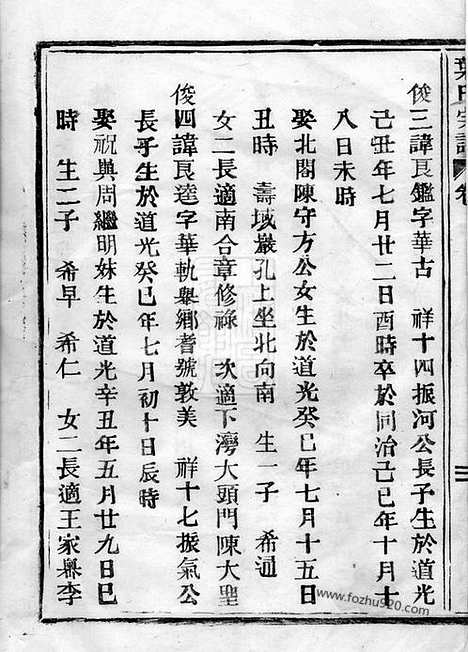 葉氏宗譜 卷
俊三諱良鑑字華古 祥十四振河公長子生於道光
己丑年七月廿二日酉時卒於同治己巳年十月十
八日未時
娶北閣陳守方公女生於道光癸巳年七月十五日
丑時 壽域巖孔上坐北向南 生一子 希通
女二長適南合章修祿 次適下灣大頭門陳大聖
俊四諱良達字華軌舉鄉耆號敦美 祥十七振氣公
長子生於道光癸巳年七月初十日辰時
娶祝輿周繼明妹生於道光辛丑年五月廿九日巳
時 生二子 希早 希仁 女二長適王家舉李
www.fozhu920.com